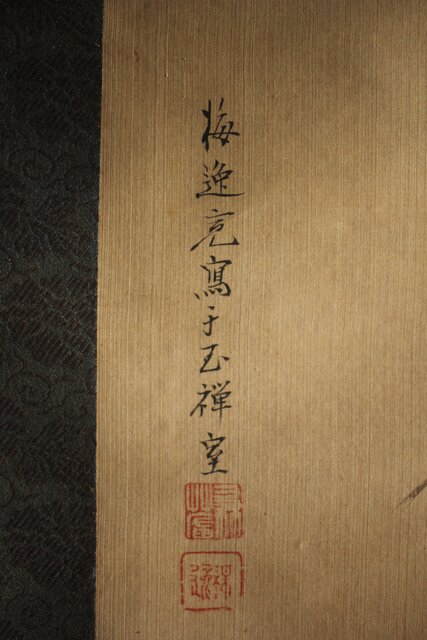 梅逸亮寫于玉禅室